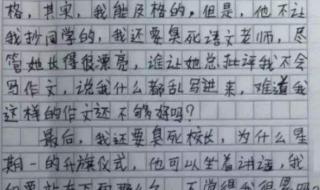 格，其实，我能及格的，但是，他不让
我抄同学的，我还要臭死语文老师，尽
管她长得很漂亮，谁让她总批评我不会
写作文，说我什么都乱写进来，难道我
这样的作文还不够好吗？
最后，我还要臭死校长，为什么星
期一的升旗仪式，他可以坐着讲话，我